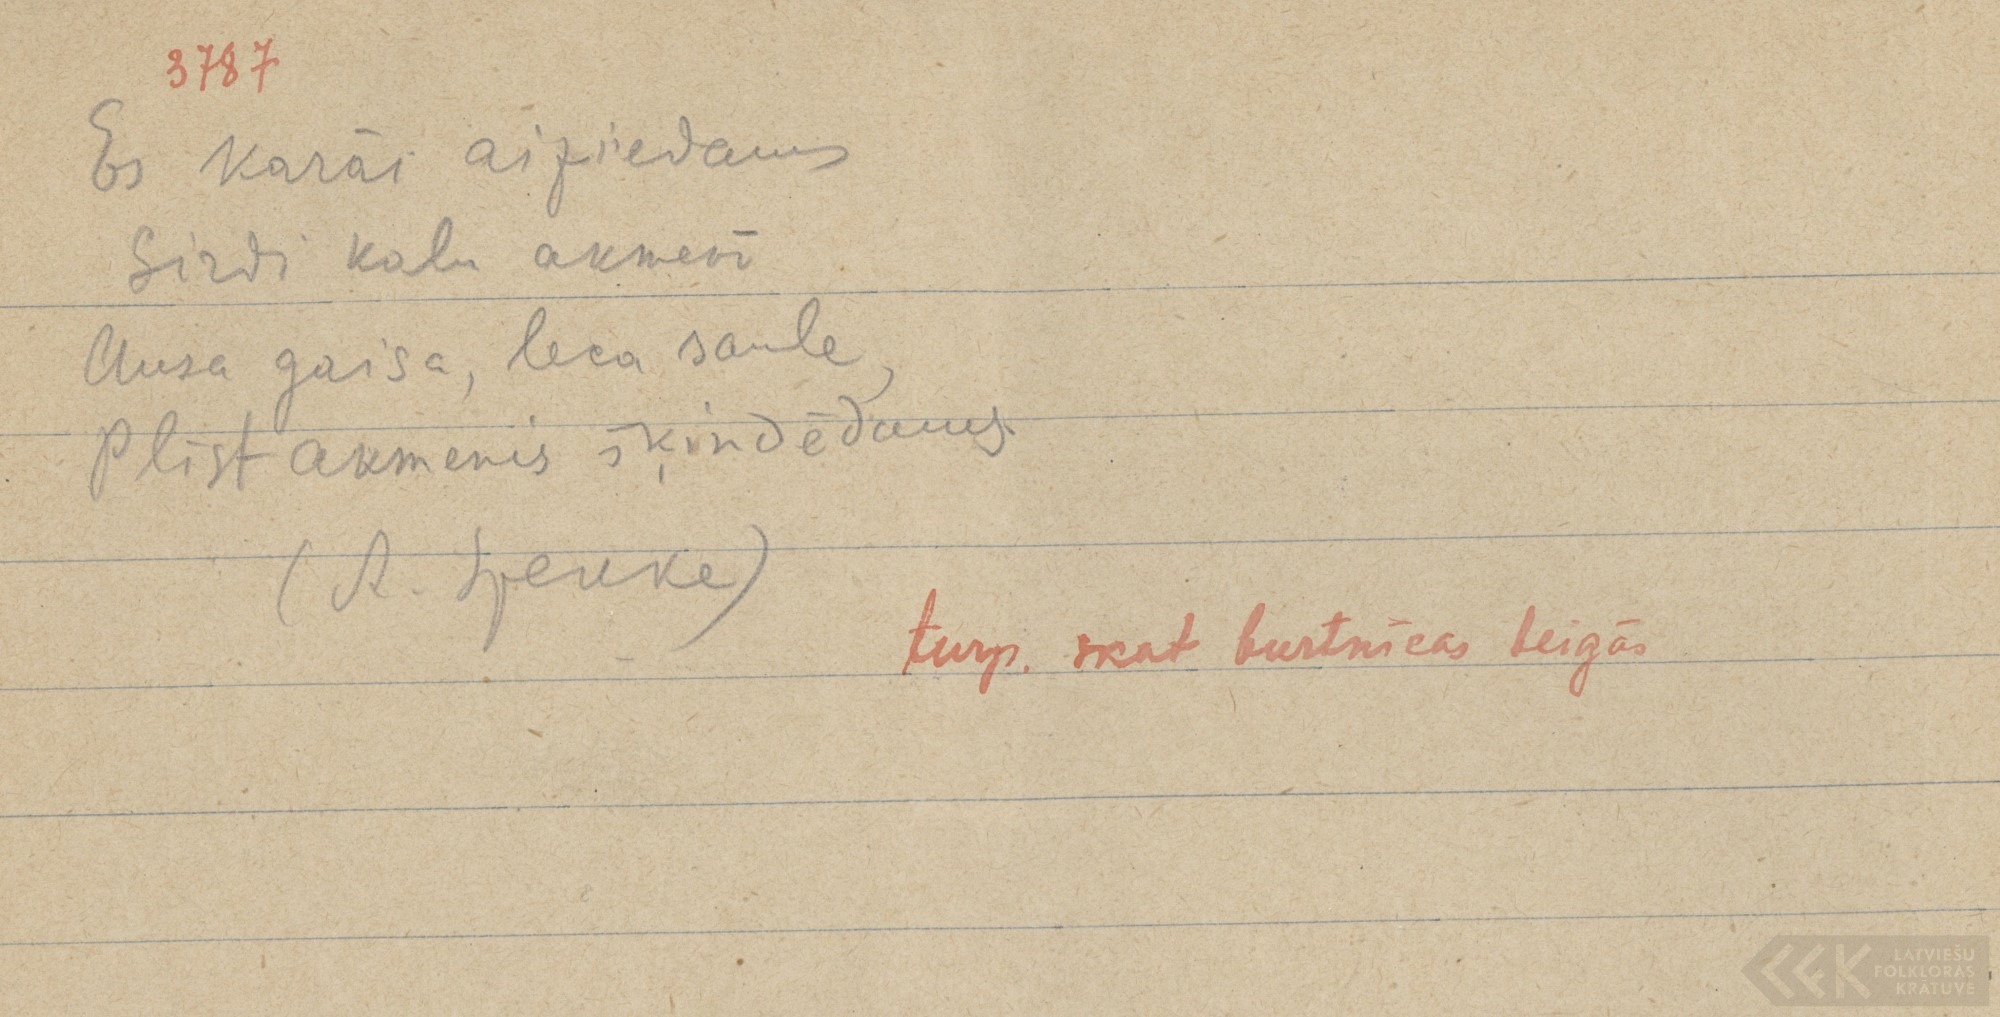 3787
Es karāi aiziedams
Sirdi kalu akmenī
Ausa gaisa, leca saule,
Plīst akmenis šķindēdams.
(A. Spekke)
turp. skat burtnīcas beigās
LATVIEŠU
FOLKLORAS
KRĀTUVE